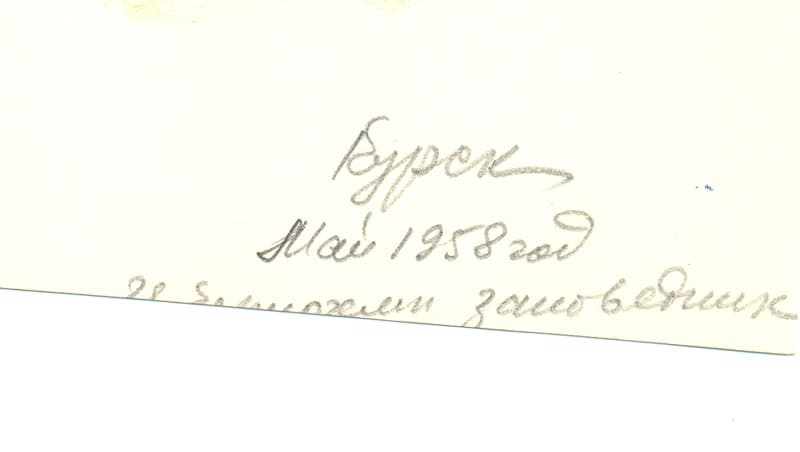 Курск
Май 1958 год
заповедник